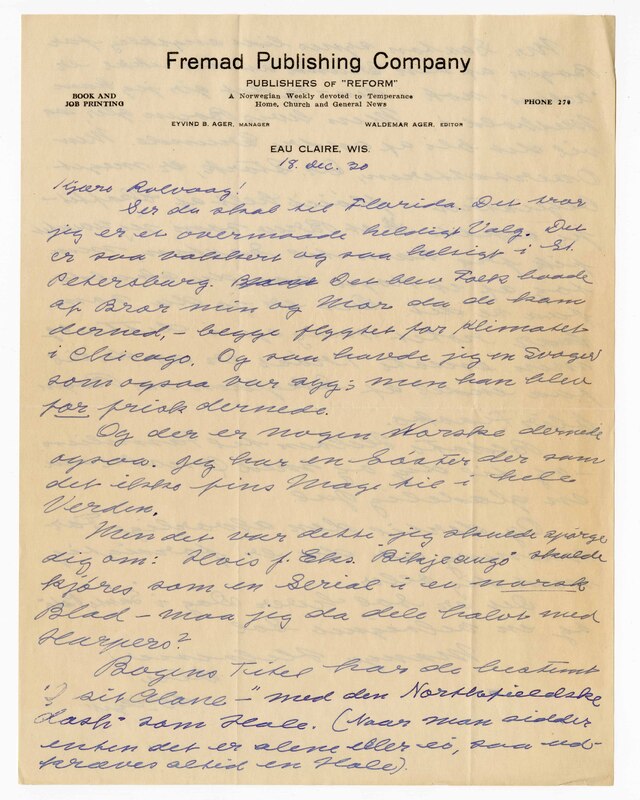 Fremad Publishing Company
PUBLISHERS OF "REFORM"
BOOK AND
JOB PRINTING
A Norwegian Weekly devoted to Temperance
Home, Church and General News
PHONE 270
EYVIND B. AGER, MANAGER
WALDEMAR AGER, EDITOR
EAU CLAIRE, WIS.
18. Dec. 30
Kjære Rolvaag!
Ser du skal til Florida. Det tror
jeg er et overmaade heldigt Valg. Det
er saa vakkert og saa helsigt i St.
Petersburg. Det blev Folk baade
af Bror min og Mor da de kom
derned, – begge flygtet for Klimatet
i Chicago. Og saa havde jeg en Svoger
som ogsaa var syg; men han blev
for frisk dernede.
Og der er nogen Norske dernede
ogsaa. Jeg har en Søster der som
det ikke fins Mage til i hele
Verden.
Men det var dette jeg skulde spørge
dig om: Hvis f. Eks. skulde
kjøres som en Serial i et norsk
Blad – maa jeg da dele halvt med
Harpers?
Bogens Titel har de bestemt
"I sit Alone –" med den Northfieldske
som Hale. (Naar man sidder
enten det er alene eller ei, saa ud-
kræves altid en Hale).